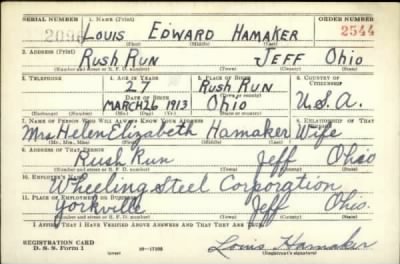 SERIAL NUMBER 1. NAME (Print) ORDER NUMBER
LOUIS EDWARD HAMAKER 2544
(First) (Middle) (Last)
2. ADDRESS (Print)
RUSH RUN JEFF OHIO
(Number and street or R. F. D. number) (Town) (County) (State)
3. TELEPHONE 4. AGE IN YEARS 5. PLACE OF BIRTH 6. COUNTRY OF CITIZENSHIP
27 RUSH RUN
(Town or county)
DATE OF BIRTH
MARCH 26 1913 OHIO U.S.A.
(Exchange) (Number) (Mo.) (Day) (Yr.) (State or country)
7. NAME OF PERSON WHO WILL ALWAYS KNOW YOUR ADDRESS 8. RELATIONSHIP OF THAT PERSON
Mrs Helen Elizabeth Hamaker Wife
(Mr., Mrs., Miss) (First) (Middle) (Last)
9. ADDRESS OF THAT PERSON
Rush Run Jeff Ohio
(Number and street or R. F. D. number) (Town) (County) (State)
10. EMPLOYER'S NAME
Wheeling Steel Corporation
11. PLACE OF EMPLOYMENT OR BUSINESS
Yorkville Jeff Ohio.
(Number and street or R. F. D. number) (Town) (County) (State)
I AFFIRM THAT I HAVE VERIFIED ABOVE ANSWERS AND THAT THEY ARE TRUE.
REGISTRATION CARD
D. S. S. Form 1 (over) Louis Hamaker
(Registrant's signature)